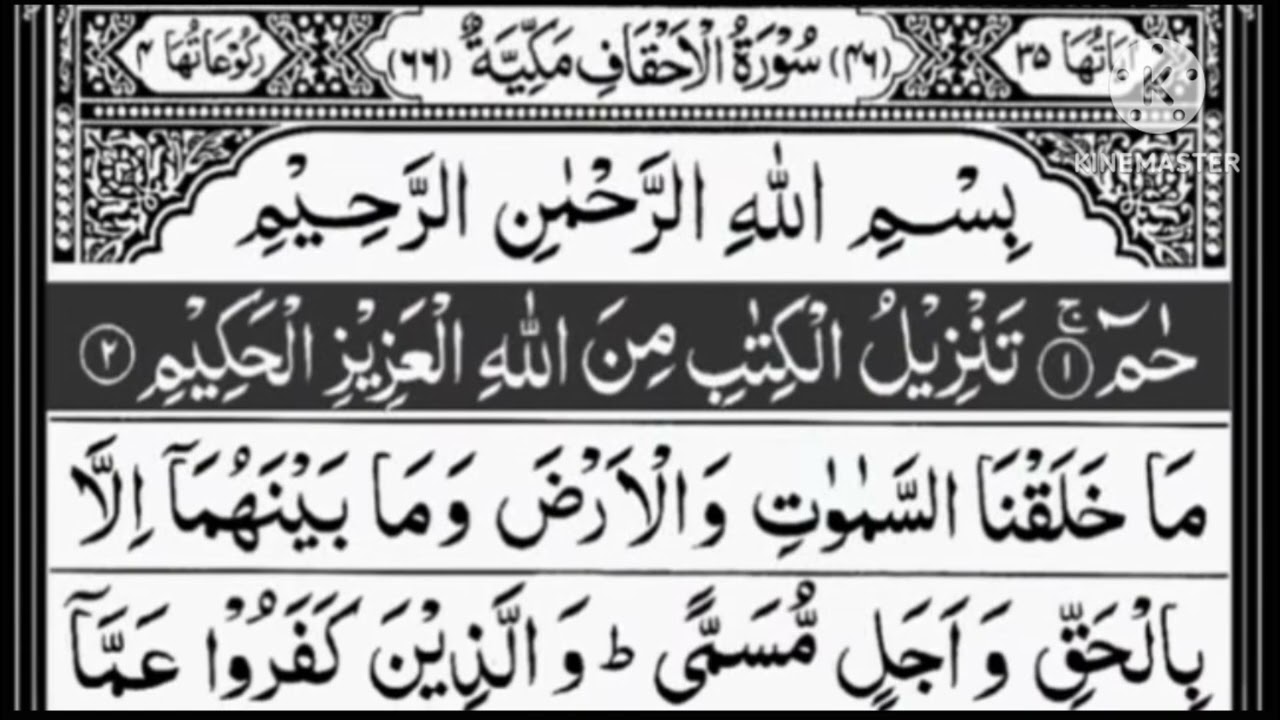 اٰیَاتُهَا ٣٥ (٤٦) سُوْرَةُ الْاَحْقَافِ مَكِّيَّةٌ (٦٦) رُكُوْعَاتُهَا ٤
KINEMASTER
بِسْمِ اللّٰهِ الرَّحْمٰنِ الرَّحِيْمِ
حٰمٓ ۚ ﴿١﴾ تَنْزِيْلُ الْكِتٰبِ مِنَ اللّٰهِ الْعَزِيْزِ الْحَكِيْمِ ﴿٢﴾
مَا خَلَقْنَا السَّمٰوٰتِ وَالْاَرْضَ وَمَا بَيْنَهُمَاۤ اِلَّا
بِالْحَقِّ وَاَجَلٍ مُّسَمًّى ؕ وَالَّذِيْنَ كَفَرُوْا عَمَّاۤ